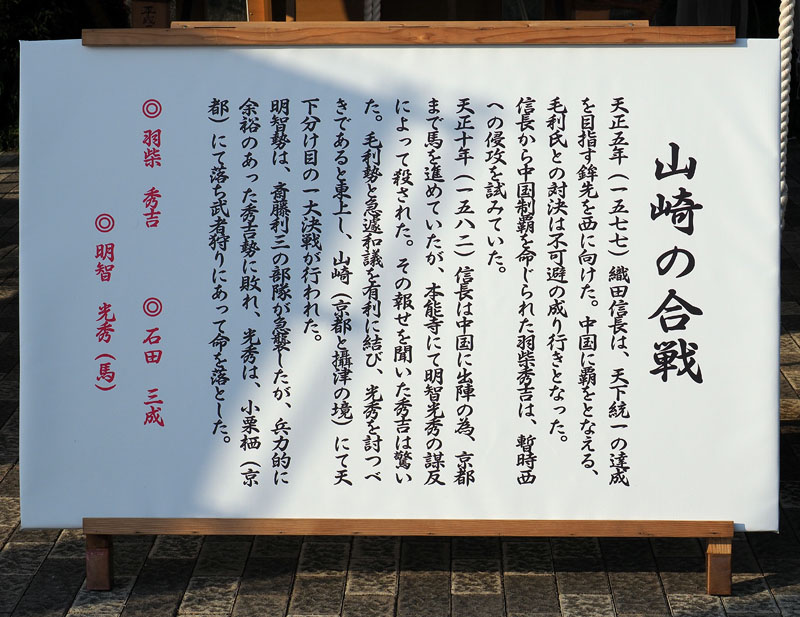 山崎の合戦
天正五年（一五七七）織田信長は、天下統一の達成
を目指す鉾先を西に向けた。中国に覇をとなえる、
毛利氏との対決は不可避の成り行きとなった。
信長から中国制覇を命じられた羽柴秀吉は、暫時西
への侵攻を試みていた。
天正十年（一五八二）信長は中国に出陣の為、京都
まで馬を進めていたが、本能寺にて明智光秀の謀反
によって殺された。その報せを聞いた秀吉は驚い
た。毛利勢と急遽和議を有利に結び、光秀を討つべ
きであると東上し、山崎（京都と攝津の境）にて天
下分け目の一大決戦が行われた。
明智勢は、斎藤利三の部隊が急襲したが、兵力的に
余裕のあった秀吉勢に敗れ、光秀は、小栗栖（京
都）にて落ち武者狩りにあって命を落とした。
◎ 羽柴 秀吉 ◎ 石田 三成
◎ 明智 光秀（馬）